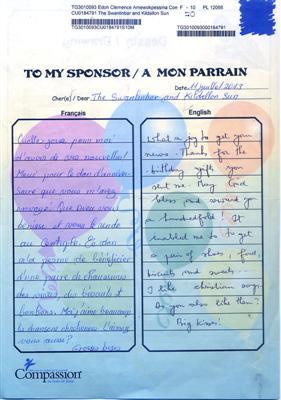 TG3010093 Edon Clemence Amewokpessina Con F - 10 PL 12066
CU0184791 The Swanlinbar and Kildallon Sun
TG3010093CU0184791S10M
TG30100930000184791
TO MY SPONSOR / A MON PARRAIN
Date: 11 juillet 2013
Cher(e) / Dear The Swanlinbar and Kildallon Sun
Français
Quelle joie pour moi
d'avoir de vos nouvelles!
Merci pour le don d'anniver-
saire que vous m'avez
envoyé. Que Dieu vous
bénisse et vous le rende
au centuple. Ce don
m'a permis de bénéficier
d'une paire de chaussures
des vivres des biscuits et
bonbons. Moi j'aime beaucoup
la chanson chrétienne. L'aimez
vous aussi?
Grosses bises
English
What a joy to get your
news. Thanks for the
birthday gift you
sent me. May God
bless and reward you
a hundredfold! It
enabled me to get
a pair of shoes, food,
biscuits and sweets.
I like christian songs.
Do you also like them?
Big kisses!
Compassion